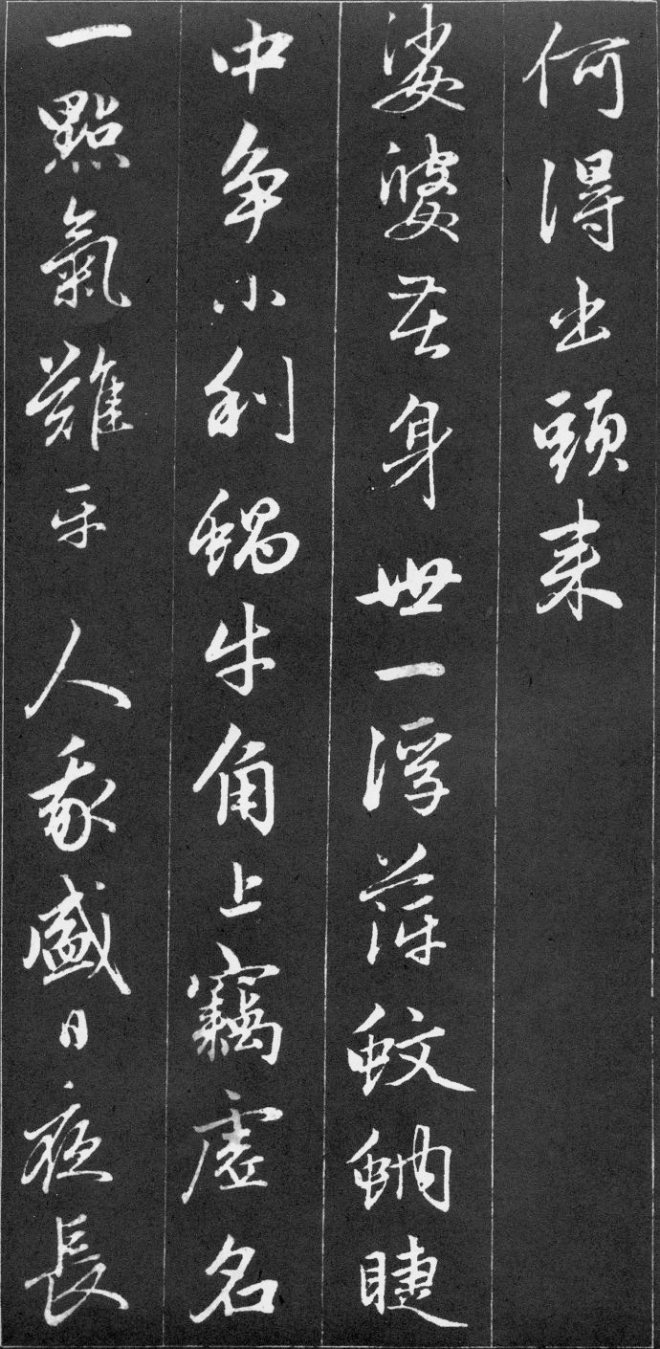 何得出頭来
娑婆苦身世一浮萍蚊蚋睫
中争小利蝸牛角上竊虛名
一點氣難平 人我盛日夜長